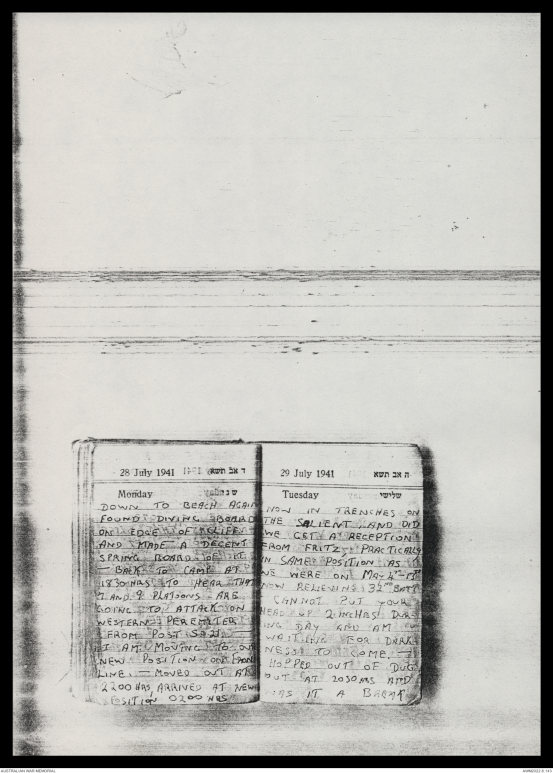 28 July 1941 ד אב תשא
Monday שני
DOWN TO BEACH AGAIN
FOUND DIVING BOARD
ON EDGE OF CLIFF
AND MADE A DECENT
SPRING BOARD OF IT
— BACK TO CAMP AT
1830 HRS TO HEAR THAT
7 AND 9 PLATOONS ARE
GOING TO ATTACK ON
WESTERN PEREMETER
FROM POST
I AM MOVING TO OUR
NEW POSITION ON FRONT
LINE. — MOVED OUT AT
2200 HRS ARRIVED AT NEW
POSITION 0200 HRS
29 July 1941 ה אב תשא
Tuesday שלישי
NOW IN TRENCHES ON
THE SALIENT AND DID
WE GET A RECEPTION
FROM FRITZ, PRACTICALLY
IN SAME POSITION AS
WE WERE ON MAY
NOW RELIEVING BATT
CANNOT PUT YOUR
HEAD UP 2 INCHES DUR-
ING DAY AND AM
WAITING FOR DARK
NESS TO COME. —
HOPPED OUT OF DUG
OUT AT 2030 HRS AND
WAS IT A
AUSTRALIAN WAR MEMORIAL